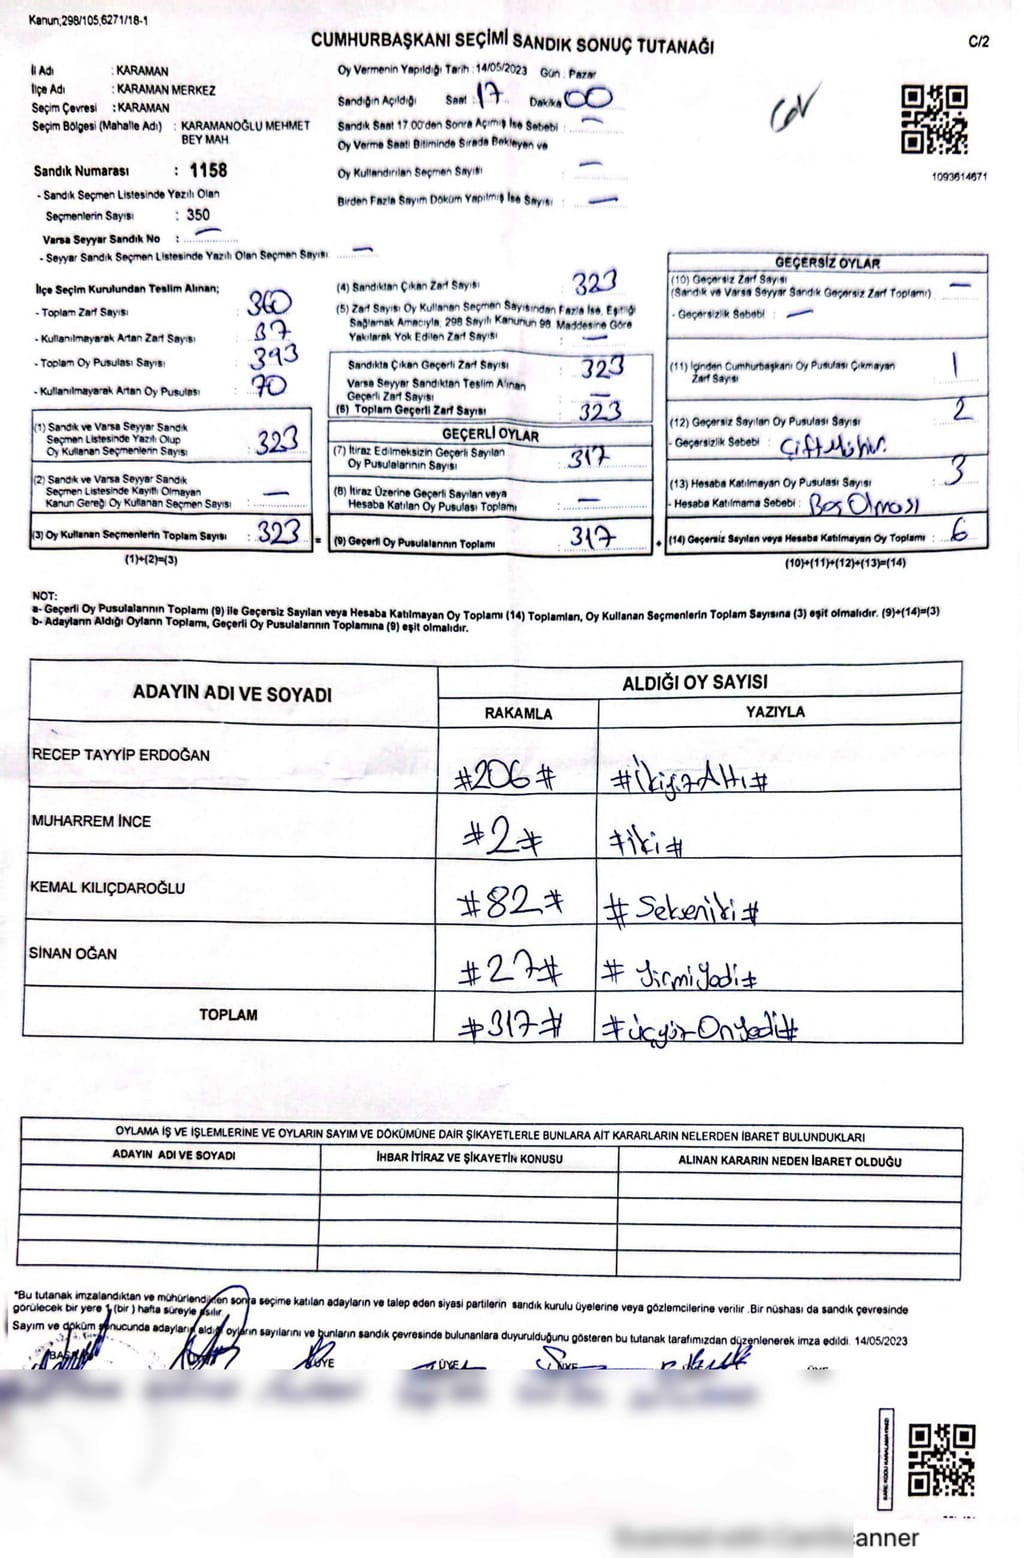 Kanun,298/105,6271/18-1
CUMHURBAŞKANI SEÇİMİ SANDIK SONUÇ TUTANAĞI
C/2
İl Adı : KARAMAN
İlçe Adı : KARAMAN MERKEZ
Seçim Çevresi : KARAMAN
Seçim Bölgesi (Mahalle Adı) : KARAMANOĞLU MEHMET
BEY MAH.
Sandık Numarası : 1158
- Sandık Seçmen Listesinde Yazılı Olan
Seçmenlerin Sayısı : 350
Varsa Seyyar Sandık No : —
- Seyyar Sandık Seçmen Listesinde Yazılı Olan Seçmen Sayısı —
Oy Vermenin Yapıldığı Tarih : 14/05/2023 Gün : Pazar
Sandığın Açıldığı Saat : 17 Dakika 00
Sandık Saat 17.00'den Sonra Açımış İse Sebebi : —
Oy Verme Saati Bitiminde Sırada Bekleyen ve
Oy Kullandırılan Seçmen Sayısı : —
Birden Fazla Sayım Döküm Yapılmış İse Sayısı : —
1093614671
İlçe Seçim Kurulundan Teslim Alınan;
- Toplam Zarf Sayısı : 360
- Kullanılmayarak Artan Zarf Sayısı : 37
- Toplam Oy Pusulası Sayısı : 393
- Kullanılmayarak Artan Oy Pusulası : 70
(1) Sandık ve Varsa Seyyar Sandık
Seçmen Listesinde Yazılı Olup
Oy Kullanan Seçmenlerin Sayısı : 323
(2) Sandık ve Varsa Seyyar Sandık
Seçmen Listesinde Kayıtlı Olmayan
Kanun Gereği Oy Kullanan Seçmen Sayısı : —
(3) Oy Kullanan Seçmenlerin Toplam Sayısı : 323 =
(1)+(2)=(3)
(4) Sandıktan Çıkan Zarf Sayısı : 323
(5) Zarf Sayısı Oy Kullanan Seçmen Sayısından Fazla İse, Eşitliği
Sağlamak Amacıyla, 298 Sayılı Kanunun 98. Maddesine Göre
Yakılarak Yok Edilen Zarf Sayısı : —
Sandıkta Çıkan Geçerli Zarf Sayısı : 323
Varsa Seyyar Sandıktan Teslim Alınan
Geçerli Zarf Sayısı : —
(6) Toplam Geçerli Zarf Sayısı : 323
GEÇERLİ OYLAR
(7) İtiraz Edilmeksizin Geçerli Sayılan
Oy Pusulalarının Sayısı : 317
(8) İtiraz Üzerine Geçerli Sayılan veya
Hesaba Katılan Oy Pusulası Toplamı : —
(9) Geçerli Oy Pusulalarının Toplamı : 317 +
GEÇERSİZ OYLAR
(10) Geçersiz Zarf Sayısı
(Sandık ve Varsa Seyyar Sandık Geçersiz Zarf Toplamı) : —
- Geçersizlik Sebebi : —
(11) İçinden Cumhurbaşkanı Oy Pusulası Çıkmayan
Zarf Sayısı : 1
(12) Geçersiz Sayılan Oy Pusulası Sayısı : 2
- Geçersizlik Sebebi : Çift Mühür.
(13) Hesaba Katılmayan Oy Pusulası Sayısı : 3
- Hesaba Katılmama Sebebi : Boş Olması
(14) Geçersiz Sayılan veya Hesaba Katılmayan Oy Toplamı : 6
(10)+(11)+(12)+(13)=(14)
NOT:
a- Geçerli Oy Pusulalarının Toplamı (9) ile Geçersiz Sayılan veya Hesaba Katılmayan Oy Toplamı (14) Toplamları, Oy Kullanan Seçmenlerin Toplam Sayısına (3) eşit olmalıdır. (9)+(14)=(3)
b- Adayların Aldığı Oyların Toplamı, Geçerli Oy Pusulalarının Toplamına (9) eşit olmalıdır.
ADAYIN ADI VE SOYADI
ALDIĞI OY SAYISI
RAKAMLA YAZIYLA
RECEP TAYYİP ERDOĞAN #206# #İkiyüzAltı#
MUHARREM İNCE #2# #iki#
KEMAL KILIÇDAROĞLU #82# #Sekseniki#
SİNAN OĞAN #27# #YirmiYedi#
TOPLAM #317# #ÜçyüzOnyedi#
OYLAMA İŞ VE İŞLEMLERİNE VE OYLARIN SAYIM VE DÖKÜMÜNE DAİR ŞİKAYETLERLE BUNLARA AİT KARARLARIN NELERDEN İBARET BULUNDUKLARI
ADAYIN ADI VE SOYADI İHBAR İTİRAZ VE ŞİKAYETİN KONUSU ALINAN KARARIN NEDEN İBARET OLDUĞU
*Bu tutanak imzalandıktan ve mühürlendikten sonra seçime katılan adayların ve talep eden siyasi partilerin sandık kurulu üyelerine veya gözlemcilerine verilir .Bir nüshası da sandık çevresinde
görülecek bir yere 1 (bir ) hafta süreyle asılır.
Sayım ve döküm sonucunda adayların aldığı oyların sayılarını ve bunların sandık çevresinde bulunanlara duyurulduğunu gösteren bu tutanak tarafımızdan düzenlenerek imza edildi. 14/05/2023
BAŞKAN ÜYE ÜYE ÜYE